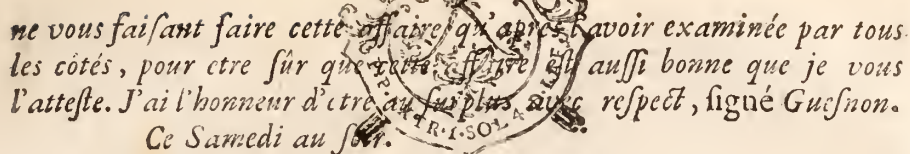 ne vous faiſant faire cette affaire qu'après l'avoir examinée par tous
les côtés, pour etre ſûr que cette affaire eſt auſſi bonne que je vous
l'atteſte. J'ai l'honneur d'etre au ſurplus avec reſpect, ſigné Gueſnon.
Ce Samedi au ſoir.
TR. I. SOL 4